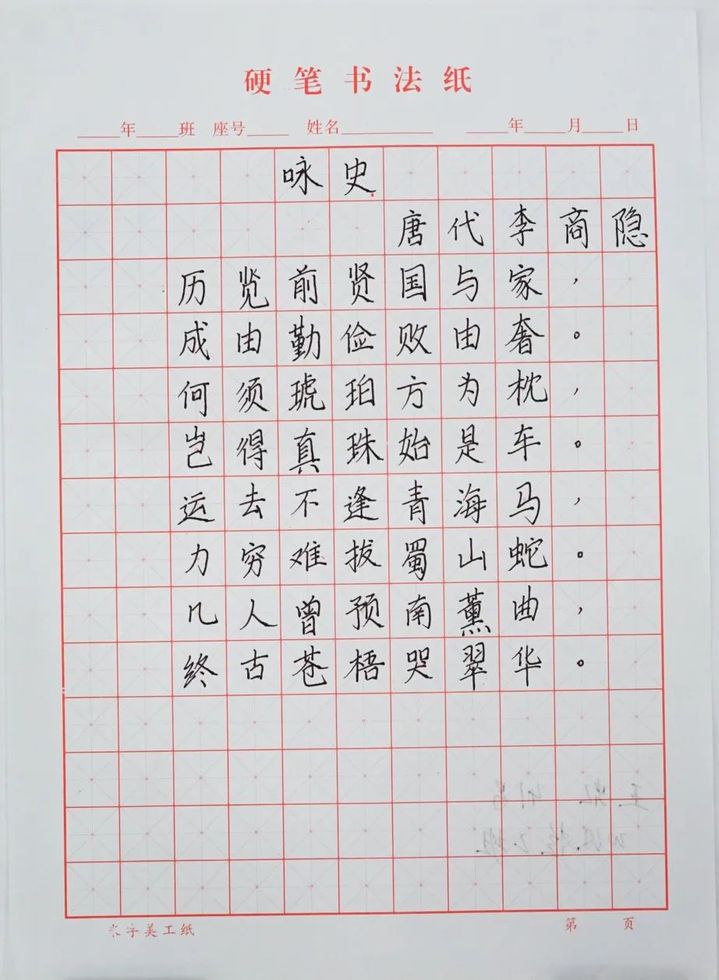 硬笔书法纸
年 班 座号 姓名 年 月 日
咏史
唐代李商隐
历览前贤国与家，
成由勤俭败由奢。
何须琥珀方为枕，
岂得真珠始是车。
运去不逢青海马，
力穷难拔蜀山蛇。
几人曾预南薰曲，
终古苍梧哭翠华。
字美工纸 第 页